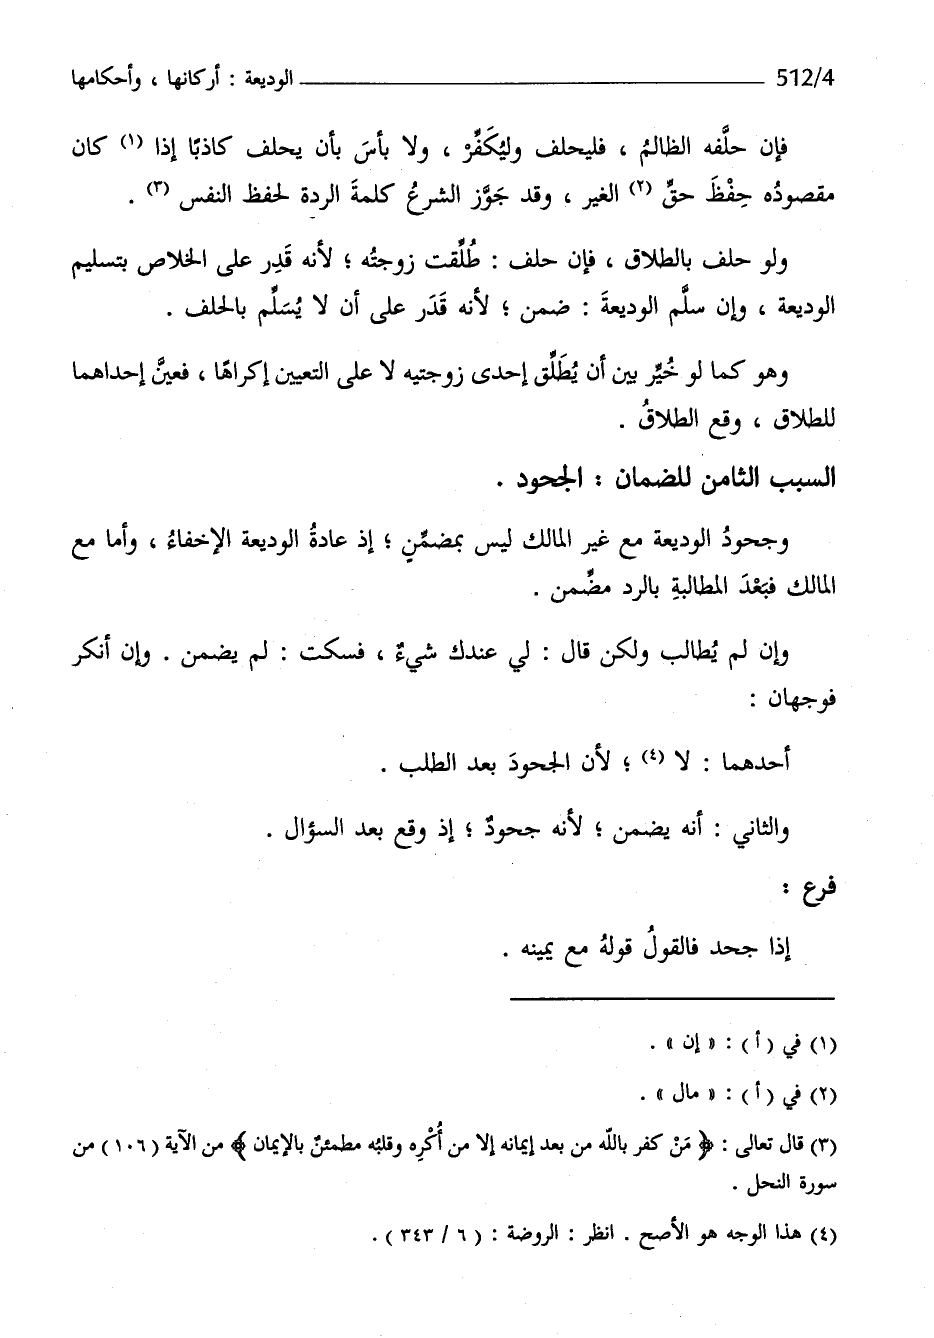 512/4 الوديعة : أركانها ، وأحكامها
فإن حلَّفه الظالمُ ، فليحلف وليُكَفِّرْ ، ولا بأسَ بأن يحلف كاذبًا إذا (١) كان
مقصودُه حِفْظَ حقٍّ (٢) الغير ، وقد جَوَّز الشرعُ كلمةَ الردة لحفظ النفس (٣) .
ولو حلف بالطلاق ، فإن حلف : طُلِّقت زوجتُه ؛ لأنه قَدِر على الخلاص بتسليم
الوديعة ، وإن سلَّم الوديعةَ : ضمن ؛ لأنه قَدَر على أن لا يُسَلِّم بالحلف .
وهو كما لو خُيِّر بين أن يُطَلِّق إحدى زوجتيه لا على التعيين إكراهًا ، فعينَّ إحداهما
للطلاق ، وقع الطلاقُ .
السبب الثامن للضمان : الجحود .
وجحودُ الوديعة مع غير المالك ليس بمضمِّنٍ ؛ إذ عادةُ الوديعة الإخفاءُ ، وأما مع
المالك فبَعْدَ المطالبةِ بالرد مضِّمن .
وإن لم يُطالب ولكن قال : لي عندك شيءٌ ، فسكت : لم يضمن . وإن أنكر
فوجهان :
أحدهما : لا (٤) ؛ لأن الجحودَ بعد الطلب .
والثاني : أنه يضمن ؛ لأنه جحودٌ ؛ إذ وقع بعد السؤال .
فرع :
إذا جحد فالقولُ قولهُ مع يمينه .
(١) في ( أ ) : « إن » .
(٢) في ( أ ) : « مال » .
(٣) قال تعالى : ﴿ مَنْ كفر باللَّه من بعد إيمانه إلا من أُكْرِه وقلبُه مطمئنٌ بالإيمان ﴾ من الآية ( ١٠٦ ) من
سورة النحل .
(٤) هذا الوجه هو الأصح . انظر : الروضة : ( ٦ / ٣٤٣ ) .